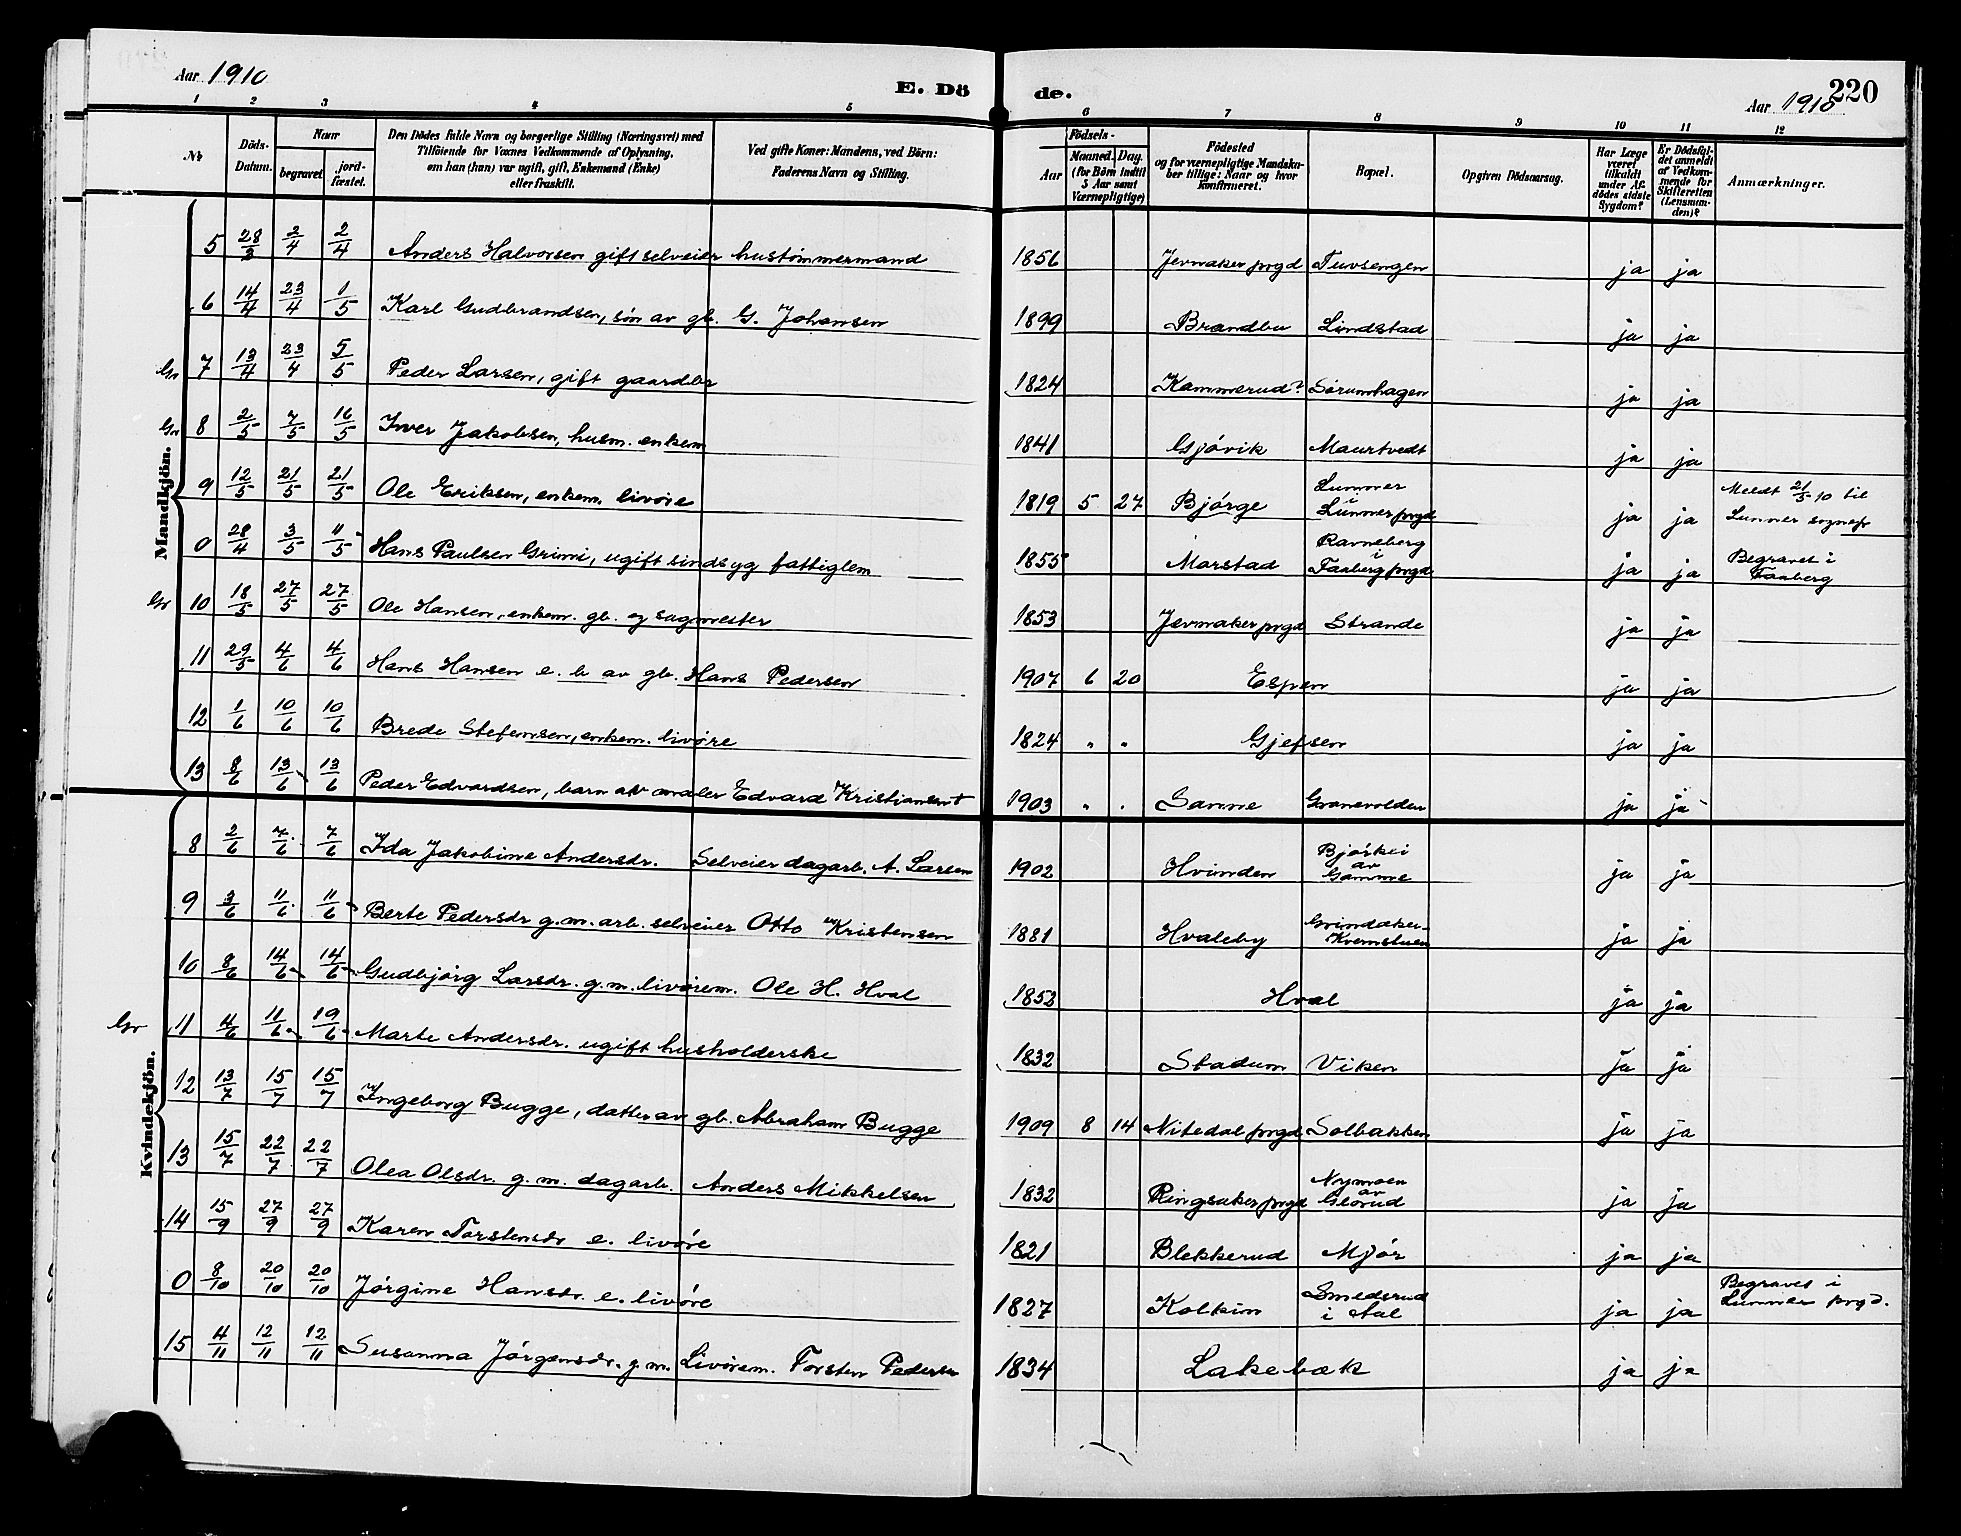 Aar 1910
E. Dö
de.
Aar 1910
220
1 2 3 4 5 6 7 8 9 10 11 12
Nr
Döds-Datum.
Naar
begravet
jord-fæstet.
Den Dödes fulde Navn og borgerlige Stilling (Næringsvei) med
Tilföiende for Voxnes Vedkommende af Oplysning,
om han (hun) var ugift, gift, Enkemand (Enke)
eller fraskilt.
Ved gifte Koner: Mandens, ved Börn:
Faderens Navn og Stilling.
Födsels-
Aar
Maaned. Dag.
(for Börn indtil
5 Aar samt
Værnepligtige)
Födested
og for værnepligtige Mandska-
ber tillige: Naar og hvor
konfirmeret.
Bopæl.
Opgiven Dödsaarsag.
Har Læge
været
tilkaldt
under Af-
dödes sidste
Sygdom?
Er Dödsfal-
det anmeldt
af Vedkom-
mende for
Skifteretten
(Lensman-
den)?
Anmærkninger.
Mandkjön.
5 28/3 2/4 2/4 Anders Halvorsen gift selveier hustømmermand 1856 Jevnaker prgd Tuvsengen ja ja
6 14/4 23/4 1/5 Karl Gudbrandsen, søn av gb. G. Johansen 1899 Brandbu Lindstad ja ja
Gr 7 13/4 23/4 5/5 Peder Larsen, gift gaardbr 1824 Kammerud? Sørumhagen ja ja
Gr 8 2/5 7/5 16/5 Iver Jakobsen, husm. enkem 1841 Gjøvik Maurtvedt ja ja
9 12/5 21/5 21/5 Ole Eriksen, enkem. livøre 1819 5 27 Bjørge Lunner i Lunner prgd ja ja Meldt 21/5 10 til Lunner sognepr
0 28/4 3/5 11/5 Hans Paulsen Grimi, ugift sindsyg fattiglem 1855 Morstad Ravneberg i Faaberg prgd ja ja Begravet i Faaberg
Gr 10 18/5 27/5 27/5 Ole Hansen, enkem. gb. og sagmester 1853 Jevnaker prgd Strande ja ja
11 29/5 4/6 4/6 Hans Hansen e. b av gb. Hans Pedersen 1907 6 20 Espen ja ja
12 1/6 10/6 10/6 Brede Stefensen, enkem. livøre 1824 " " Gjefsen ja ja
13 8/6 13/6 13/6 Peder Edvardsen, barn av maler Edvard Kristiansen † 1903 " " Gamme Granevolden ja ja
Kvindekjön.
8 2/6 7/6 7/6 Ida Jakobine Andersdr. Selveier dagarb. A. Larsen 1902 Hvinden Bjørkei av Gamme ja ja
9 3/6 11/6 11/6 Berte Pedersdr g. m. arb. selveier Otto Kristensen 1881 Hvaleby Grindaker-Kvernstuen ja ja
10 8/6 14/6 14/6 Gudbjørg Larsdr. g. m. livørem. Ole H. Hval 1852 Hval ja ja
Gr 11 4/6 11/6 19/6 Marte Andersdr. ugift husholderske 1832 Stadum Viken ja ja
12 13/7 15/7 15/7 Ingeborg Bugge, datter av gb. Abraham Bugge 1909 8 14 Nitedal prgd Solbakken ja ja
13 15/7 22/7 22/7 Olea Olsdr. g. m. dagarb. Anders Mikkelsen 1832 Ringsaker prgd Nymoen av Glorud ja ja
14 15/9 27/9 27/9 Karen Torstensdr e. livøre 1821 Blekkerud Mjør ja ja
0 8/10 20/10 20/10 Jørgine Hansdr. e. livøre 1827 Kolkin Smedsrud i Aal ja ja Begravet i Lunner prgd.
15 4/11 12/11 12/11 Susanna Jørgensdr. g. m. Livørem. Torsten Pedersen 1834 Lakebæk ja ja